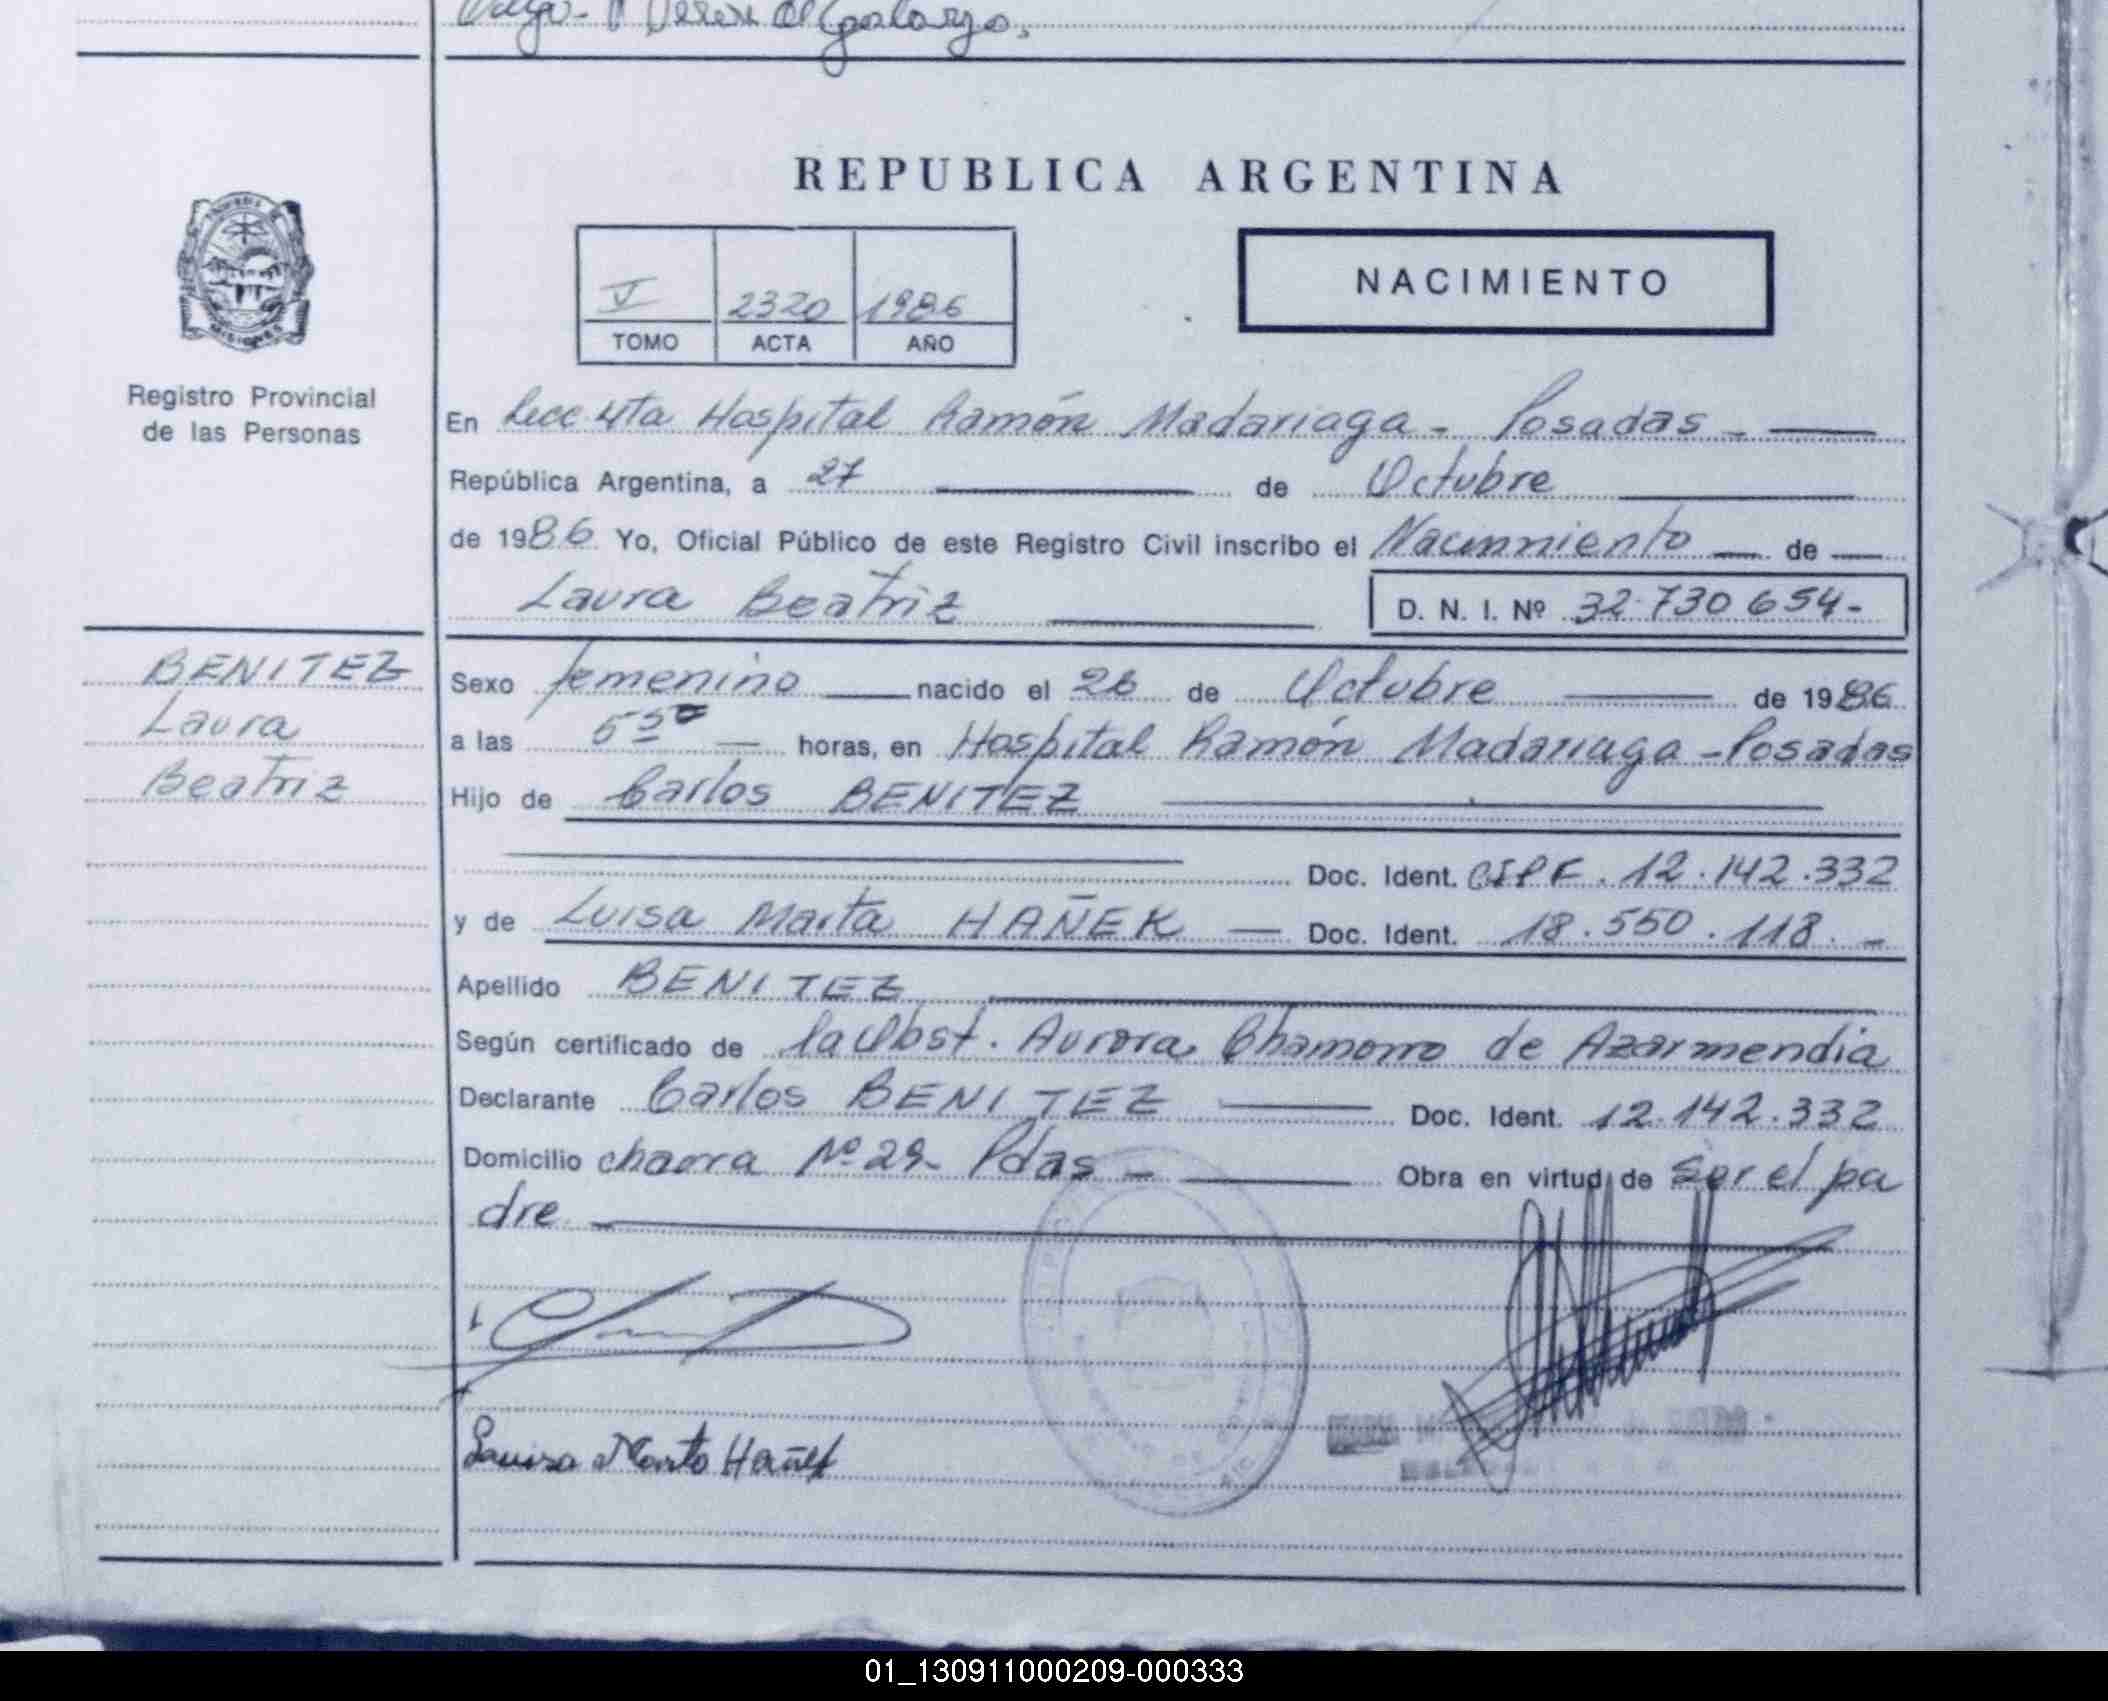 REPUBLICA ARGENTINA
V 2320 1986
TOMO ACTA AÑO
NACIMIENTO
Registro Provincial
de las Personas
En Secc. 4ta Hospital Ramón Madariaga - Posadas -
República Argentina, a 27 de Octubre
de 1986 Yo, Oficial Público de este Registro Civil inscribo el Nacimiento de
Laura Beatriz D. N. I. Nº 32.730654-
BENITEZ
Laura
Beatriz
Sexo femenino nacido el 26 de Octubre de 1986
a las 5 50 horas, en Hospital Ramón Madariaga - Posadas
Hijo de Carlos BENITEZ
Doc. Ident. CIPF. 12.142.332
y de Luisa Marta HAÑEK Doc. Ident. 18.550.118. -
Apellido BENITEZ
Según certificado de la Obst. Aurora Chamorro de Azarmendia
Declarante Carlos BENITEZ Doc. Ident. 12.142.332
Domicilio chacra Nº 29- Pdas - Obra en virtud de Ser el pa
dre
Luisa Marta Hañek
01_130911000209-000333